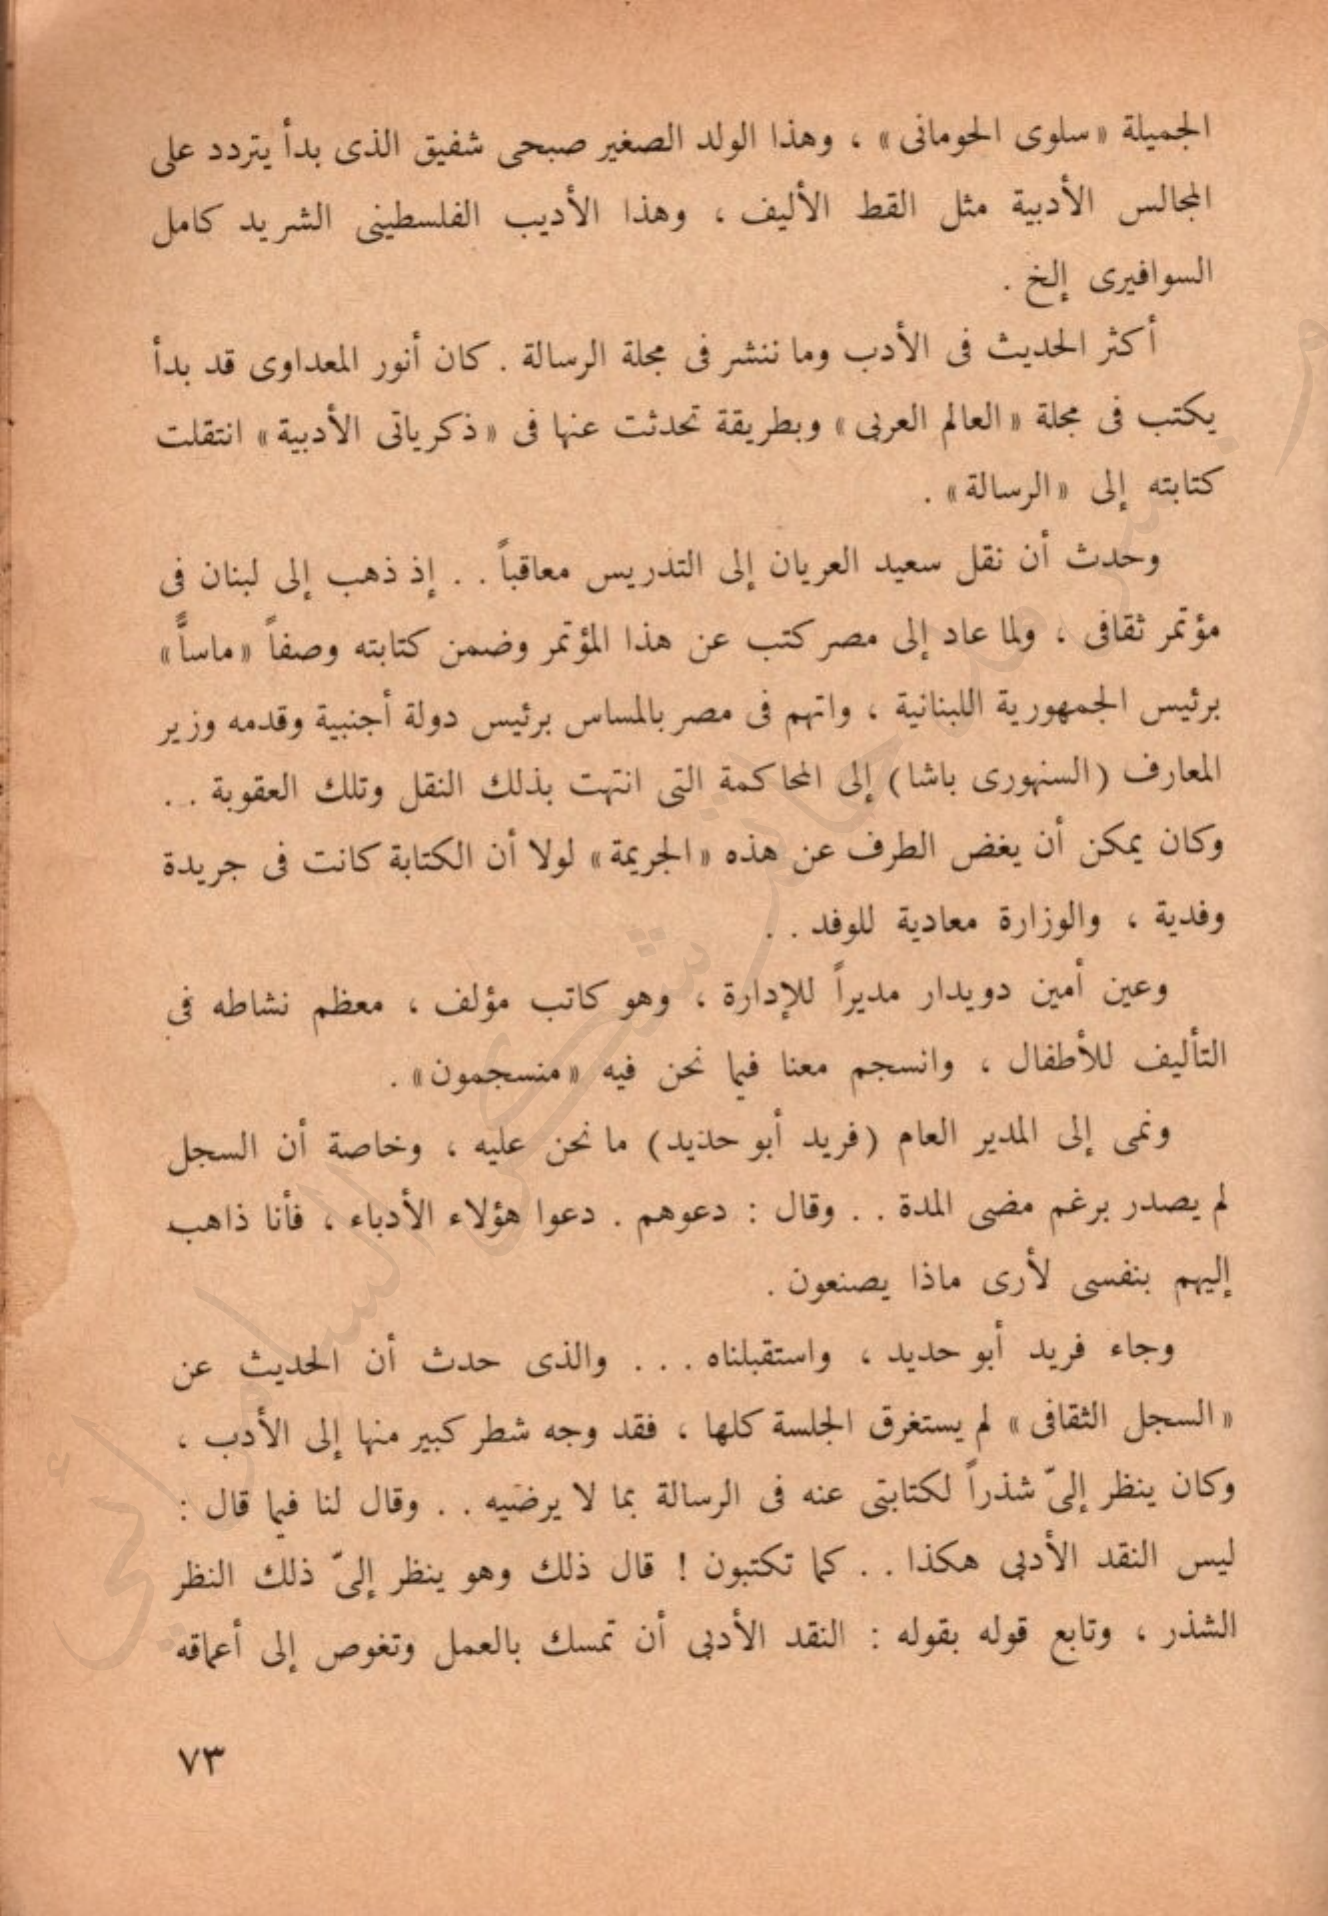 الجميلة «سلوى الحومانى» ، وهذا الولد الصغير صبحى شفيق الذى بدأ يتردد على
المجالس الأدبية مثل القط الأليف ، وهذا الأديب الفلسطينى الشريد كامل
السوافيرى إلخ .
أكثر الحديث فى الأدب وما ننشر فى مجلة الرسالة . كان أنور المعداوى قد بدأ
يكتب فى مجلة «العالم العربى» وبطريقة تحدثت عنها فى «ذكرياتى الأدبية» انتقلت
كتابته إلى «الرسالة» .
وحدث أن نقل سعيد العريان إلى التدريس معاقباً . . إذ ذهب إلى لبنان فى
مؤتمر ثقافى ، ولما عاد إلى مصر كتب عن هذا المؤتمر وضمن كتابته وصفاً «ماسًّا»
برئيس الجمهورية اللبنانية ، واتهم فى مصر بالمساس برئيس دولة أجنبية وقدمه وزير
المعارف (السنهورى باشا) إلى المحاكمة التى انتهت بذلك النقل وتلك العقوبة . .
وكان يمكن أن يغض الطرف عن هذه «الجريمة» لولا أن الكتابة كانت فى جريدة
وفدية ، والوزارة معادية للوفد . .
وعين أمين دويدار مديراً للإدارة ، وهو كاتب مؤلف ، معظم نشاطه فى
التأليف للأطفال ، وانسجم معنا فيما نحن فيه «منسجمون» .
ونمى إلى المدير العام (فريد أبو حديد) ما نحن عليه ، وخاصة أن السجل
لم يصدر برغم مضى المدة . . وقال : دعوهم . دعوا هؤلاء الأدباء ، فأنا ذاهب
إليهم بنفسى لأرى ماذا يصنعون .
وجاء فريد أبو حديد ، واستقبلناه . . . والذى حدث أن الحديث عن
«السجل الثقافى» لم يستغرق الجلسة كلها ، فقد وجه شطر كبير منها إلى الأدب ،
وكان ينظر إلىّ شذراً لكتابتى عنه فى الرسالة بما لا يرضيه . . وقال لنا فيما قال :
ليس النقد الأدبى هكذا . . كما تكتبون ! قال ذلك وهو ينظر إلىّ ذلك النظر
الشذر ، وتابع قوله بقوله : النقد الأدبى أن تمسك بالعمل وتغوص إلى أعماقه
٧٣